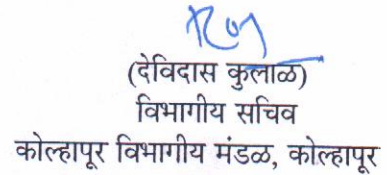 (देविदास कुलाळ)
विभागीय सचिव
कोल्हापूर विभागीय मंडळ, कोल्हापूर